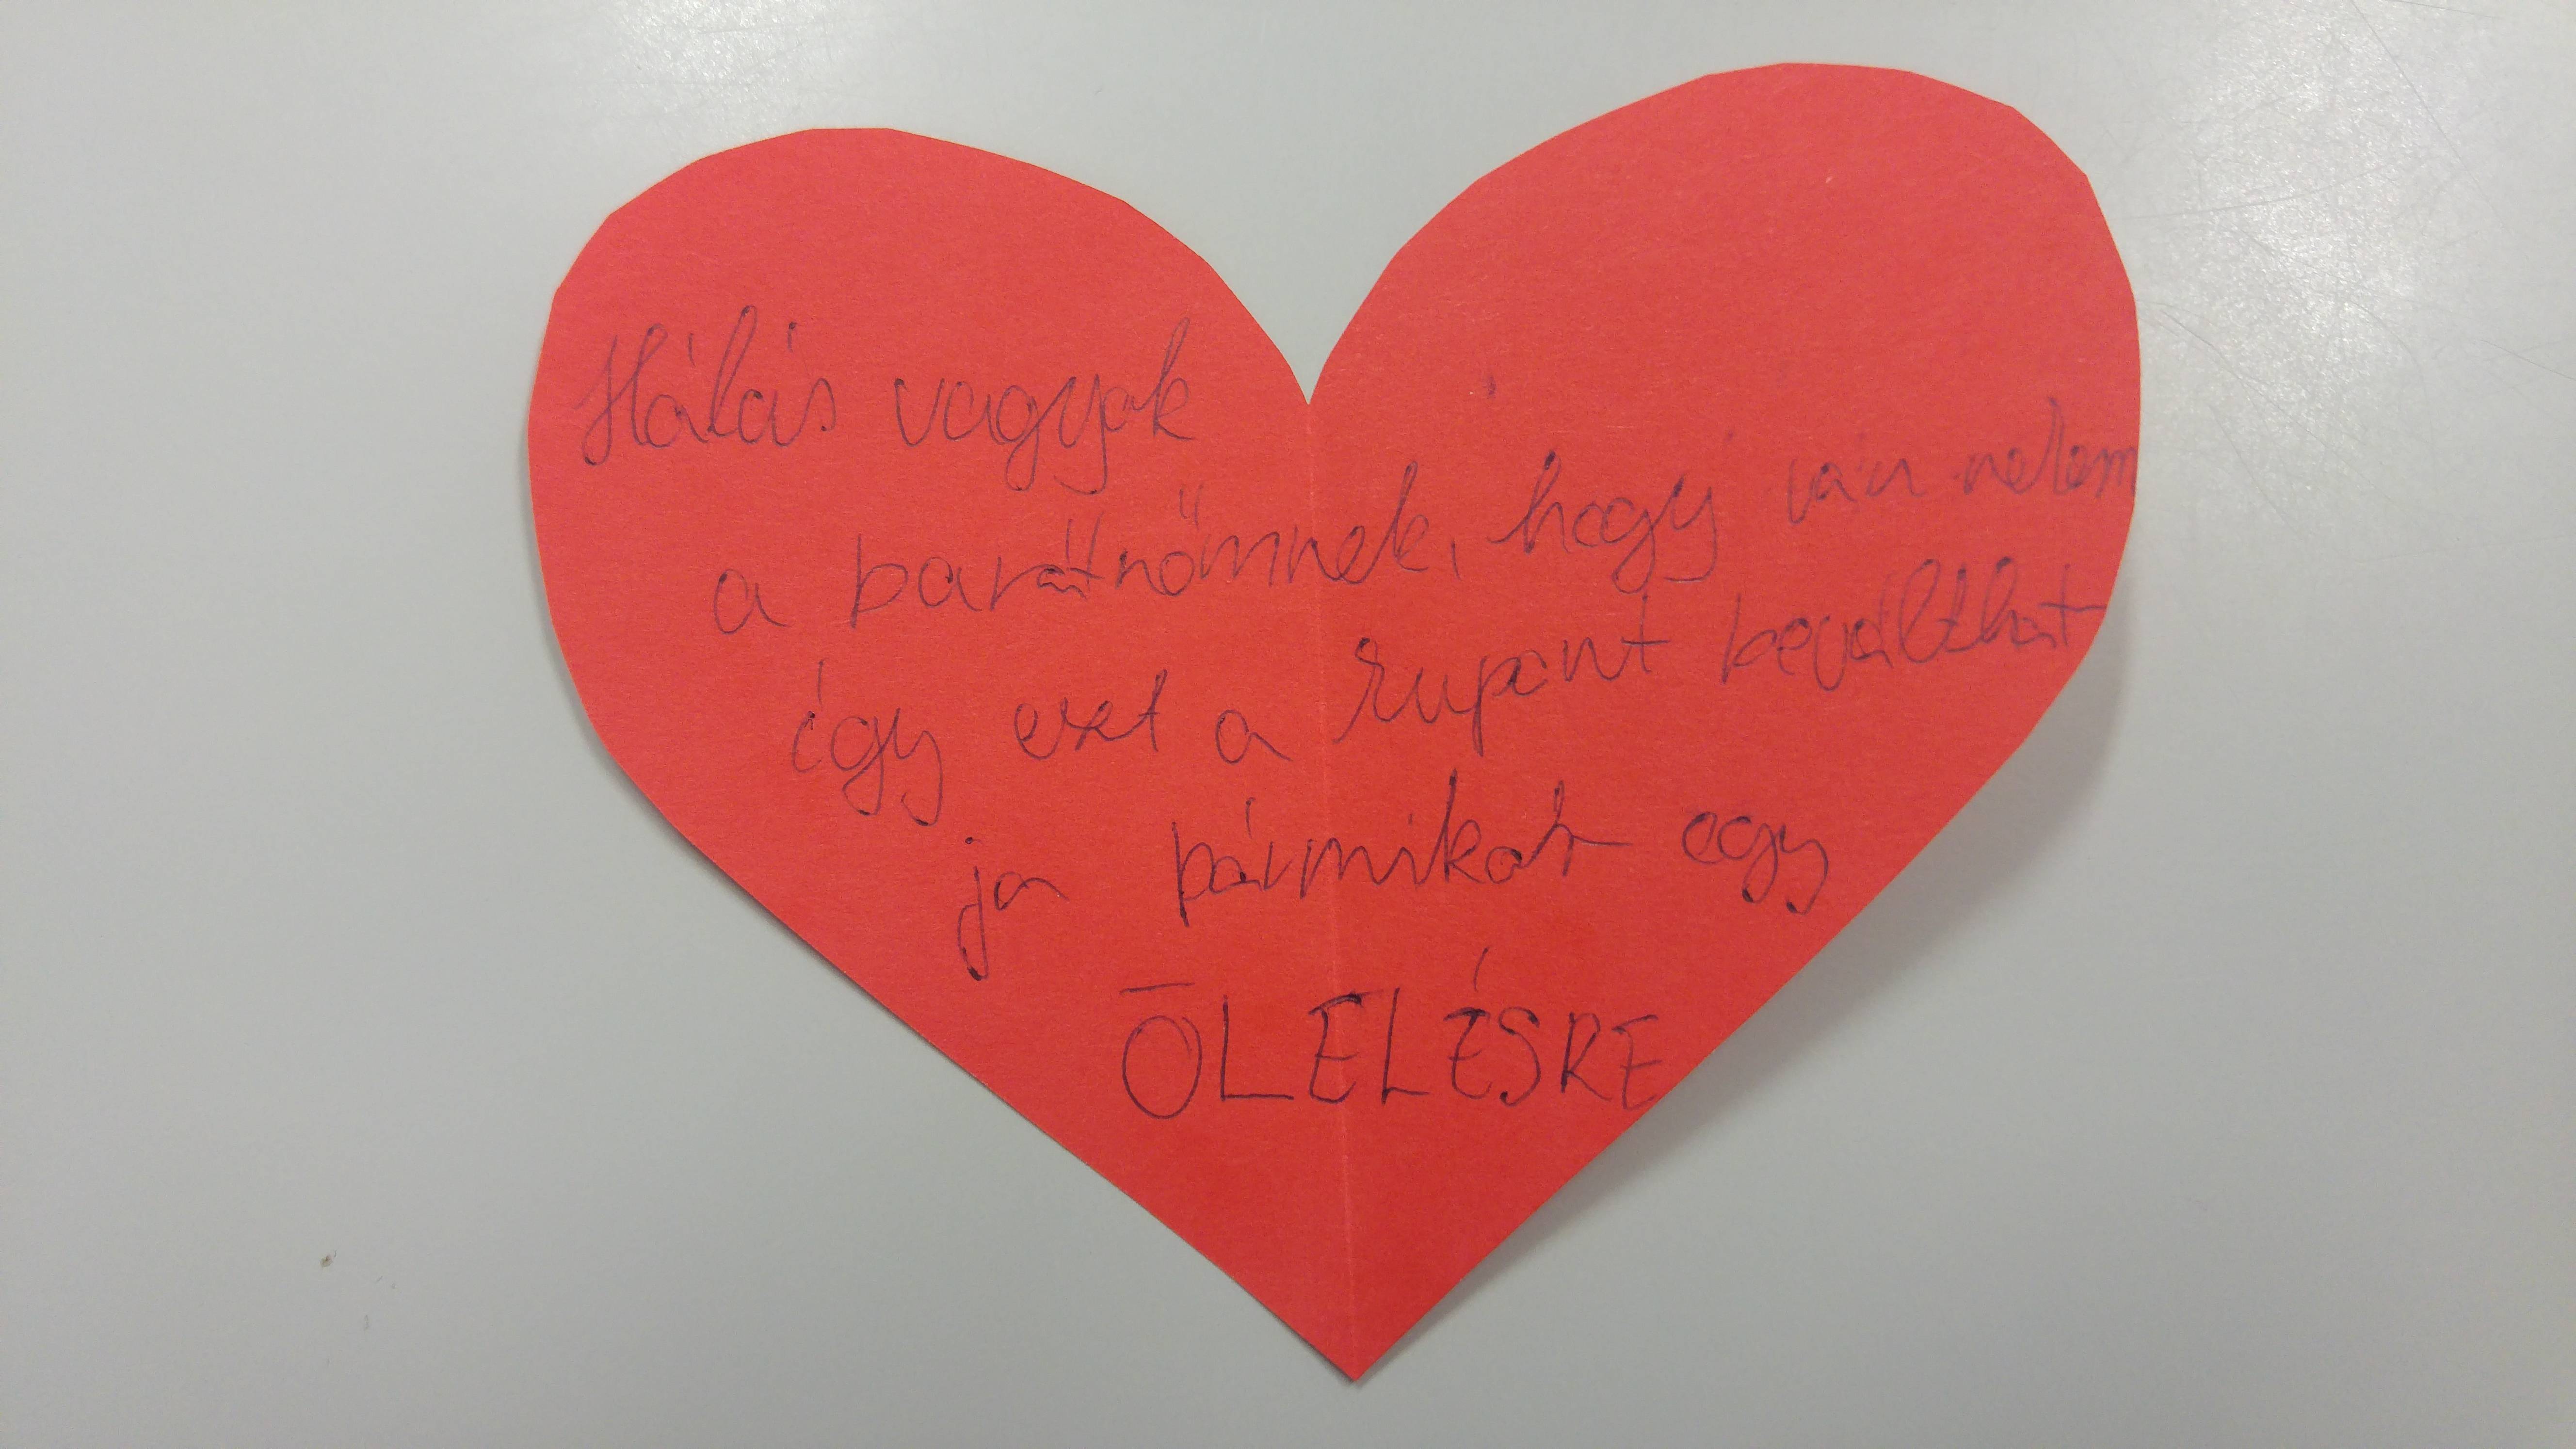 Hálás vagyok
a barátnőmnek, hogy ván velem
így ezt a kupont beválthat
ja bármikor egy
ŌLELÉSRE